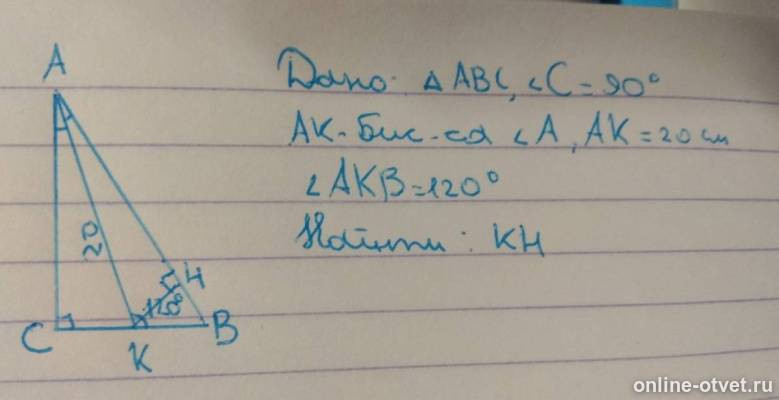 A
Дано: △ ABC, ∠C = 90°
AK - бис-са ∠A, AK = 20 см
∠AKB = 120°
Найти: KH
20
H
120°
C
B
K
online-otvet.ru